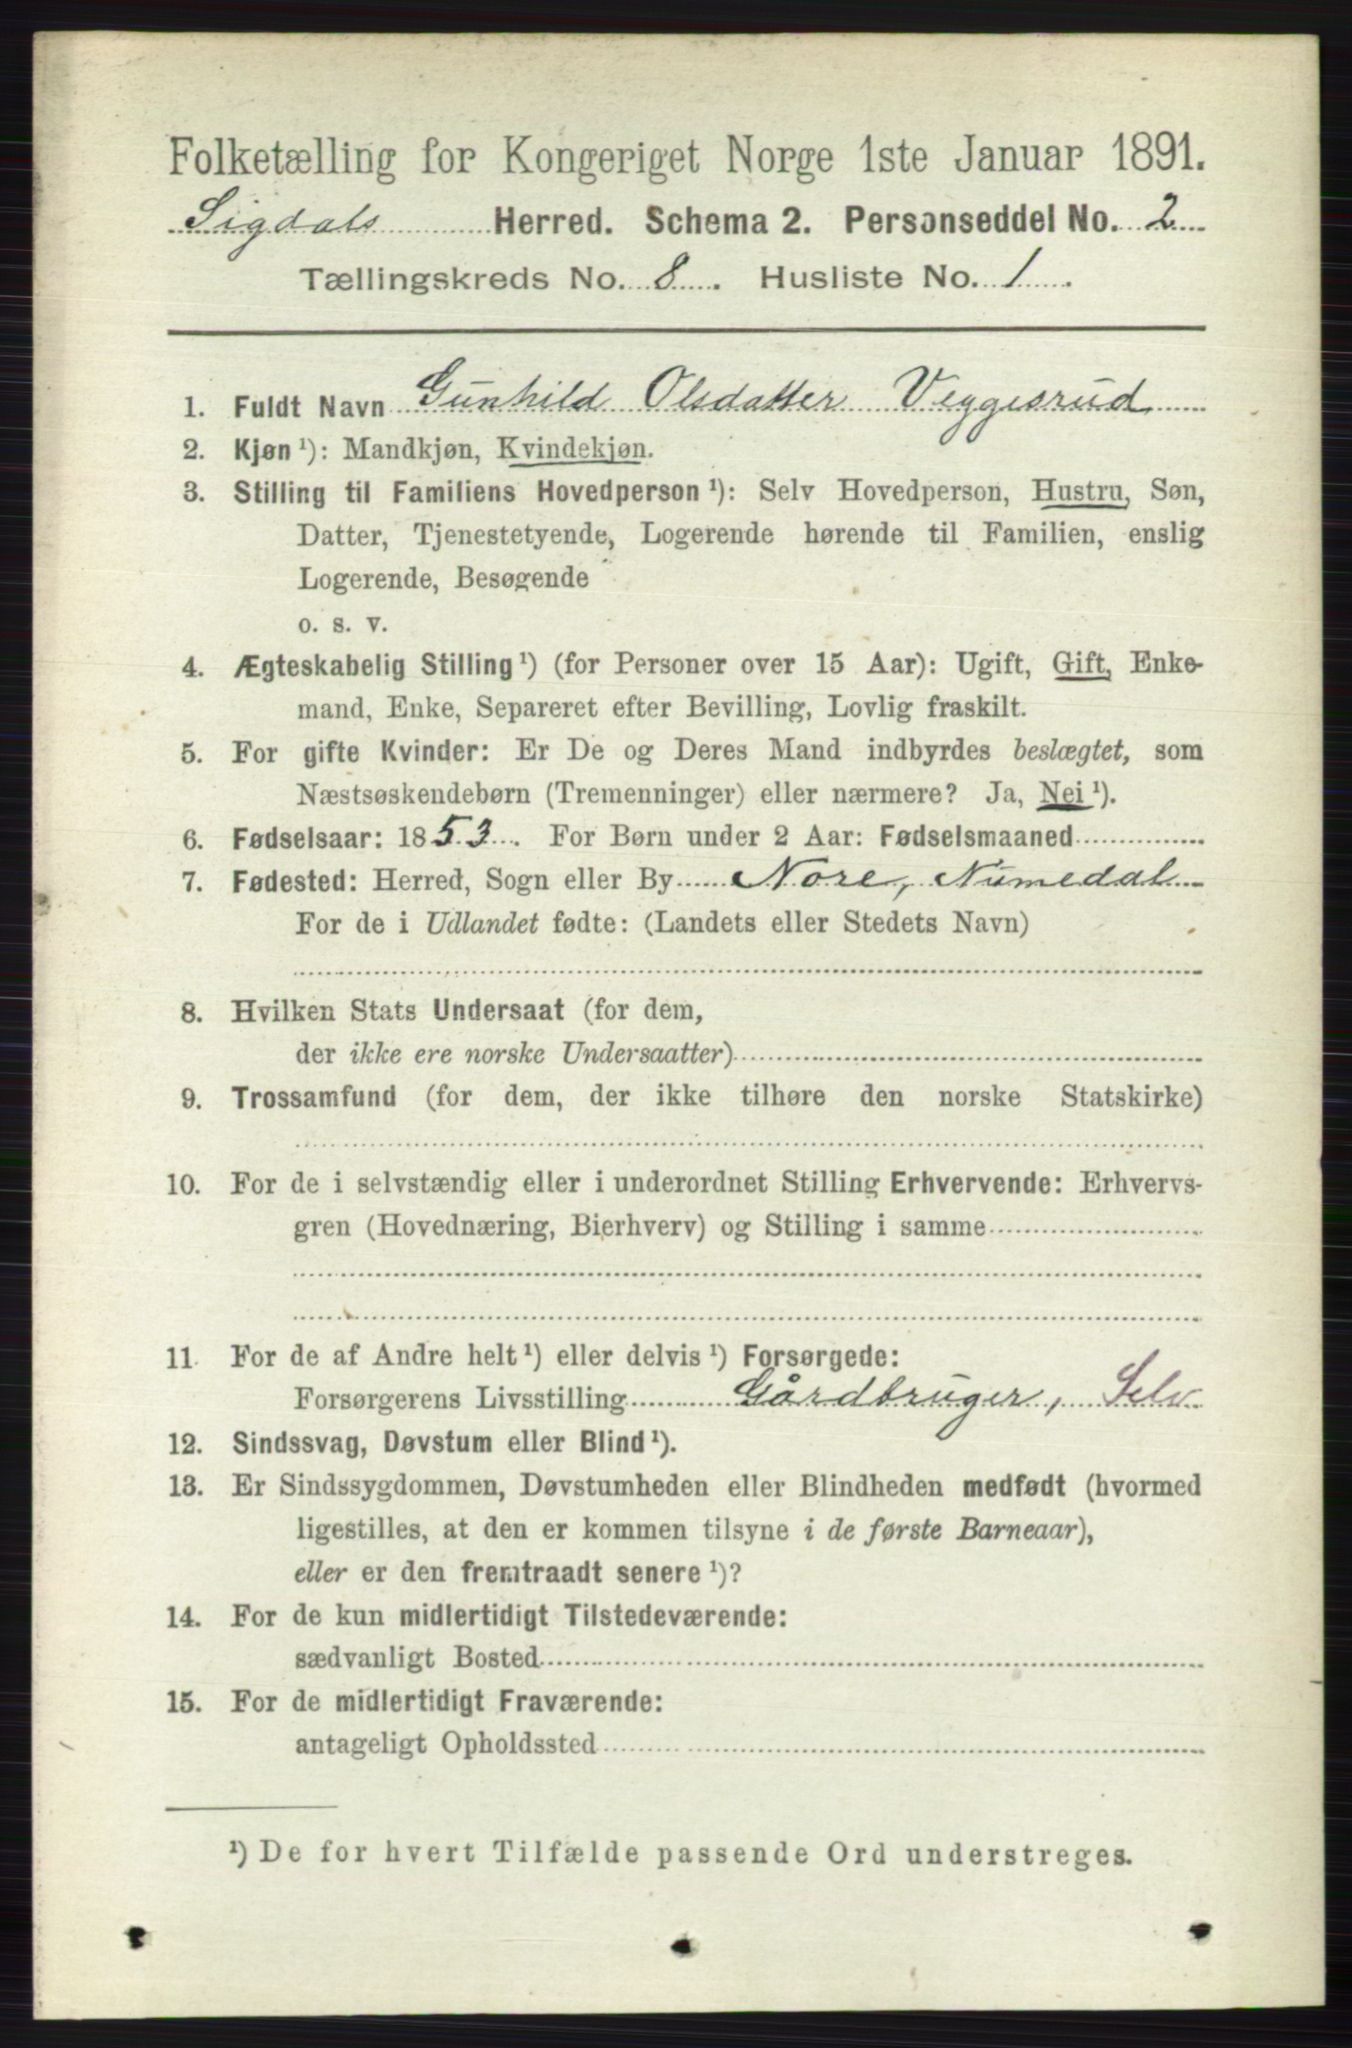 Folketælling for Kongeriget Norge 1ste Januar 1891.
Sigdals Herred. Schema 2. Personseddel No. 2
Tællingskreds No. 8. Husliste No. 1.
1. Fuldt Navn Gunhild Olsdatter Veggesrud
2. Kjøn ¹): Mandkjøn, Kvindekjøn.
3. Stilling til Familiens Hovedperson ¹): Selv Hovedperson, Hustru, Søn,
Datter, Tjenestetyende, Logerende hørende til Familien, enslig
Logerende, Besøgende
o. s. v.
4. Ægteskabelig Stilling ¹) (for Personer over 15 Aar): Ugift, Gift, Enke-
mand, Enke, Separeret efter Bevilling, Lovlig fraskilt.
5. For gifte Kvinder: Er De og Deres Mand indbyrdes beslægtet, som
Næstsøskendebørn (Tremenninger) eller nærmere? Ja, Nei ¹).
6. Fødselsaar: 1853. For Børn under 2 Aar: Fødselsmaaned
7. Fødested: Herred, Sogn eller By Nore, Numedal
For de i Udlandet fødte: (Landets eller Stedets Navn)
8. Hvilken Stats Undersaat (for dem,
der ikke ere norske Undersaatter)
9. Trossamfund (for dem, der ikke tilhøre den norske Statskirke)
10. For de i selvstændig eller i underordnet Stilling Erhvervende: Erhvervs-
gren (Hovednæring, Bierhverv) og Stilling i samme
11 For de af Andre helt ¹) eller delvis ¹) Forsørgede:
Forsørgerens Livsstilling Gårdbruger, Selv
12. Sindssvag, Døvstum eller Blind ¹).
13. Er Sindssygdommen, Døvstumheden eller Blindheden medfødt (hvormed
ligestilles, at den er kommen tilsyne i de første Barneaar),
eller er den fremtraadt senere ¹)?
14. For de kun midlertidigt Tilstedeværende:
sædvanligt Bosted
15. For de midlertidigt Fraværende:
antageligt Opholdssted
¹) De for hvert Tilfælde passende Ord understreges.